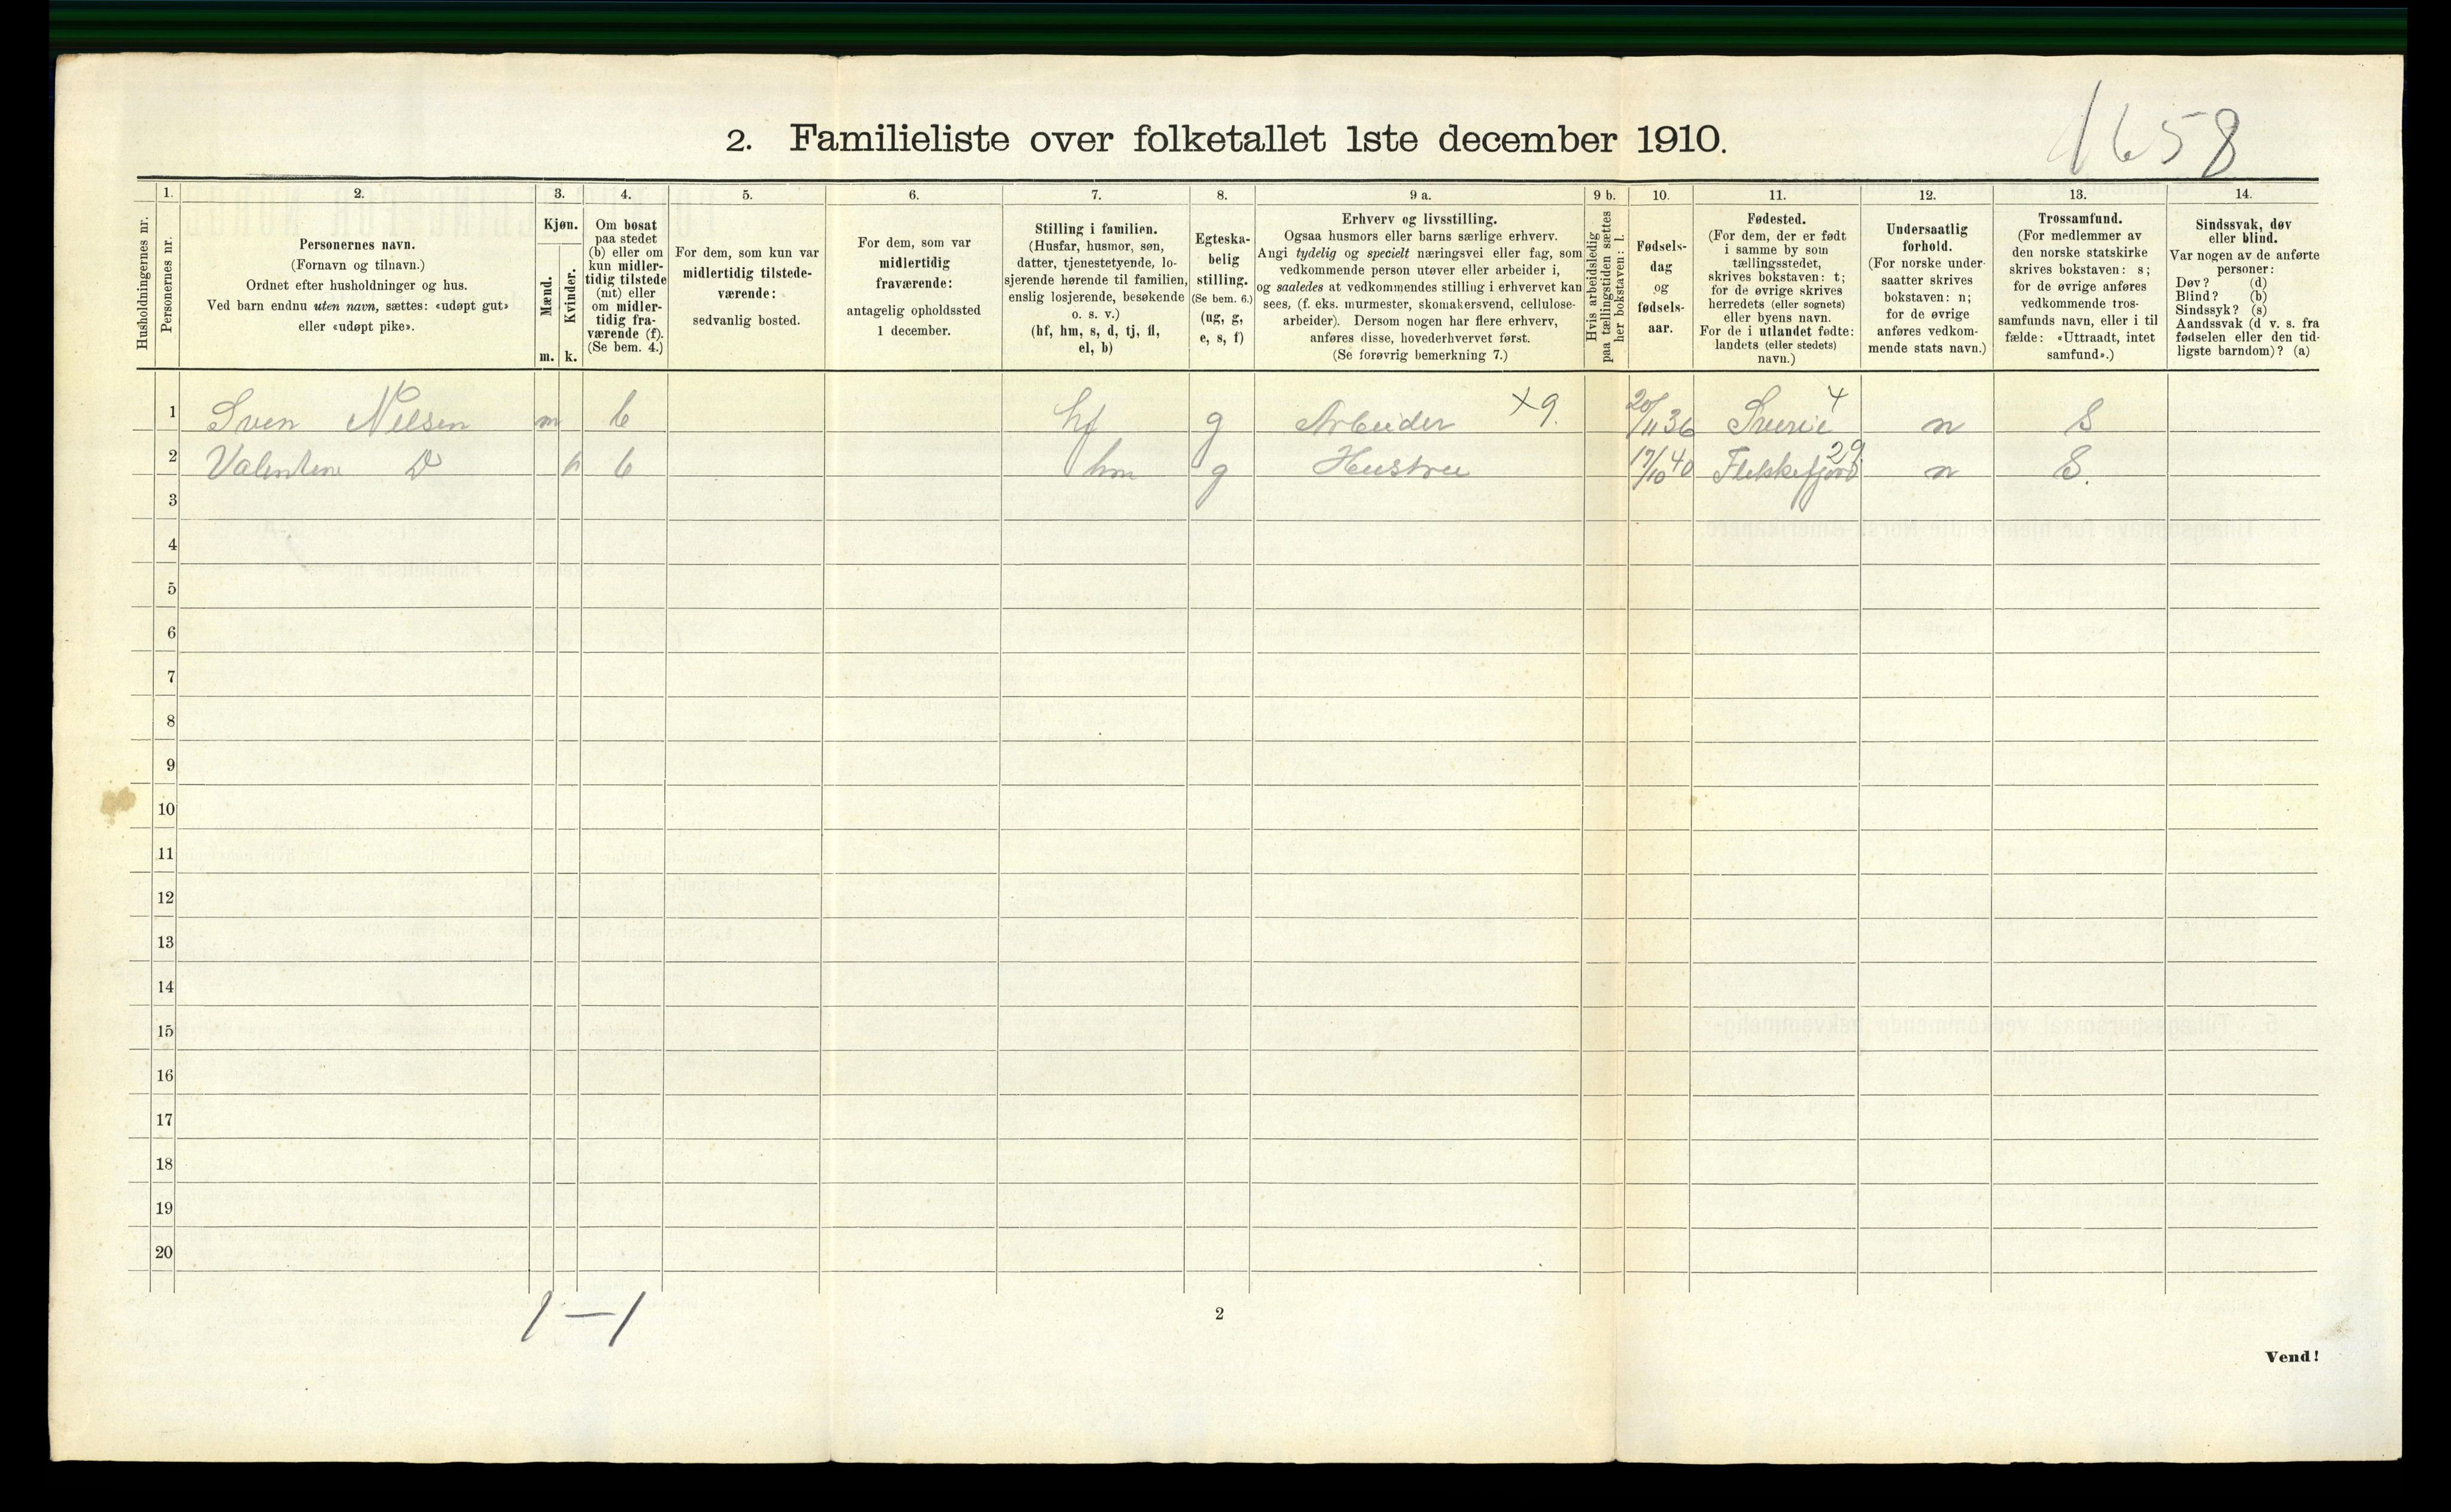 1658
2. Familieliste over folketallet 1ste december 1910.
Husholdningernes nr.
1.
Personernes nr.
2.
Personernes navn.
(Fornavn og tilnavn.)
Ordnet efter husholdninger og hus.
Ved barn endnu uten navn, sættes: «udøpt gut»
eller «udøpt pike».
3.
Kjøn.
Mænd.
Kvinder.
m.
k.
4.
Om bosat
paa stedet
(b) eller om
kun midler-
tidig tilstede
(mt) eller
om midler-
tidig fra-
værende (f).
(Se bem. 4.)
5.
For dem, som kun var
midlertidig tilstede-
værende:
sedvanlig bosted.
6.
For dem, som var
midlertidig
fraværende:
antagelig opholdssted
1 december.
7.
Stilling i familien.
(Husfar, husmor, søn,
datter, tjenestetyende, lo-
sjerende hørende til familien,
enslig losjerende, besøkende
o. s. v.)
(hf, hm, s, d, tj, fl,
el, b)
8.
Egteska-
belig
stilling.
(Se bem. 6.)
(ug, g,
e, s, f)
9 a.
Erhverv og livsstilling.
Ogsaa husmors eller barns særlige erhverv.
Angi tydelig og specielt næringsvei eller fag, som
vedkommende person utøver eller arbeider i,
og saaledes at vedkommendes stilling i erhvervet kan
sees, (f. eks. murmester, skomakersvend, cellulose-
arbeider). Dersom nogen har flere erhverv,
anføres disse, hovederhvervet først.
(Se forøvrig bemerkning 7.)
9 b.
Hvis arbeidsledig
paa tællingstiden sættes
her bokstaven: l.
10.
Fødsels-
dag
og
fødsels-
aar.
11.
Fødested.
(For dem, der er født
i samme by som
tællingsstedet,
skrives bokstaven: t;
for de øvrige skrives
herredets (eller sognets)
eller byens navn.
For de i utlandet fødte:
landets (eller stedets)
navn.)
12.
Undersaatlig
forhold.
(For norske under-
saatter skrives
bokstaven: n;
for de øvrige
anføres vedkom-
mende stats navn.)
13.
Trossamfund.
(For medlemmer av
den norske statskirke
skrives bokstaven: s;
for de øvrige anføres
vedkommende tros-
samfunds navn, eller i til
fælde: «Uttraadt, intet
samfund».)
14.
Sindssvak, døv
eller blind.
Var nogen av de anførte
personer:
Døv? (d)
Blind? (b)
Sindssyk? (s)
Aandssvak (d v. s. fra
fødselen eller den tid-
ligste barndom)? (a)
1 Sven Nilsen m b hf g Arbeider X9. 20/11 36 Sverie 4 n S
2 Valentine D k b hm g Hustru 17/10 40 Flekkefjord 29 n S.
3
4
5
6
7
8
9
10
11
12
13
14
15
16
17
18
19
20
1—1
2
Vend!